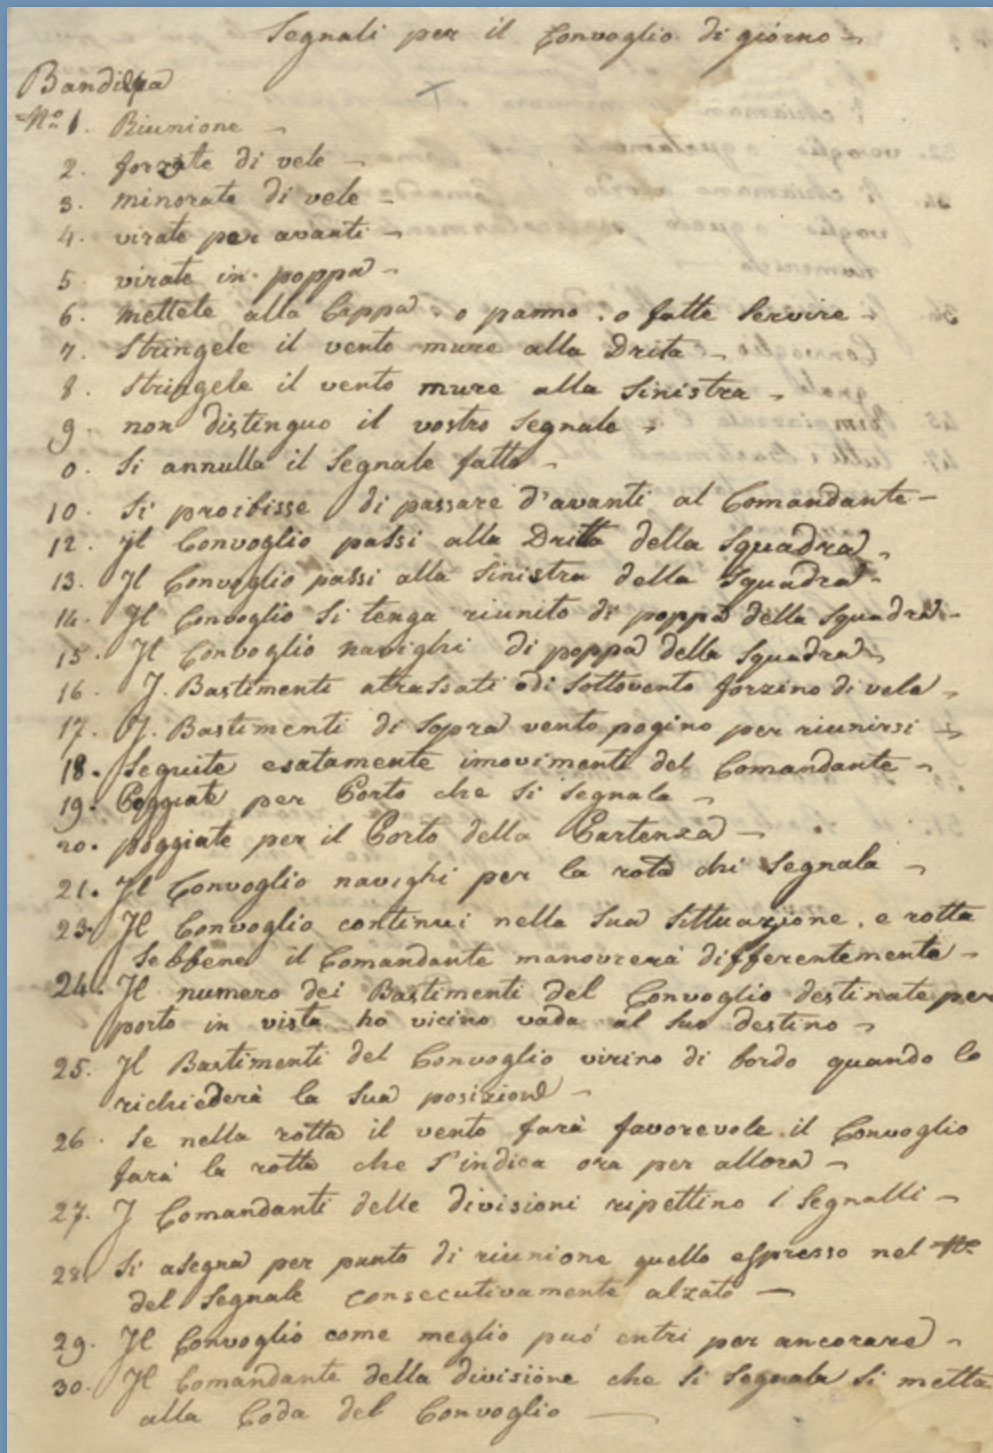 Segnali per il Convoglio di giorno -
Bandiera
No. 1. Riunione -
2. forzate di vele -
3. minorate di vele -
4. virate per avanti -
5. virate in poppa -
6. mettete alla Cappa, o panno, o fatte Servire -
7. Stringete il vento mure alla Drita -
8. Stringete il vento mure alla Sinistra -
9. non distinguo il vostro Segnale -
0. Si annulla il Segnale fatto -
10. Si proibisse di passare d'avanti al Comandante -
12. Il Convoglio passi alla Dritta della Squadra -
13. Il Convoglio passi alla Sinistra della Squadra -
14. Il Convoglio Si tenga riunito di poppa della Squadra -
15. Il Convoglio navighi di poppa della Squadra -
16. I. Bastimenti atrassati e di Sottovento forzino di vela -
17. I. Bastimenti di Sopra vento pogino per riunirsi -
18. Seguite esatamente imovimenti del Comandante -
19. Poggiate per Porto che Si Segnala -
20. poggiate per il Porto della Partenza -
21. Il Convoglio navighi per la rota chi Segnala -
23. Il Convoglio continui nella Sua Sittuazione, e rotta
Sebbene il Comandante manovrerà differentemente -
24. Il numero dei Bastimenti del Convoglio destinate per
porto in vista ho vicino vada al Suo destino -
25. Il Bastimenti del Convoglio virino di bordo quando lo
richiederà la Sua posizione -
26. Se nella rotta il vento farà favorevole il Convoglio
farà la rotta che S'indica ora per allora -
27. I Comandanti delle divisioni ripettino i Segnalli -
28. Si asegna per punto di riunione quello espresso nel No.
del Segnale consecutivamente alzato -
29. Il Convoglio come meglio puó entri per ancorare -
30. Il Comandante della divisione che Si Segnala Si metta
alla Coda del Convoglio -